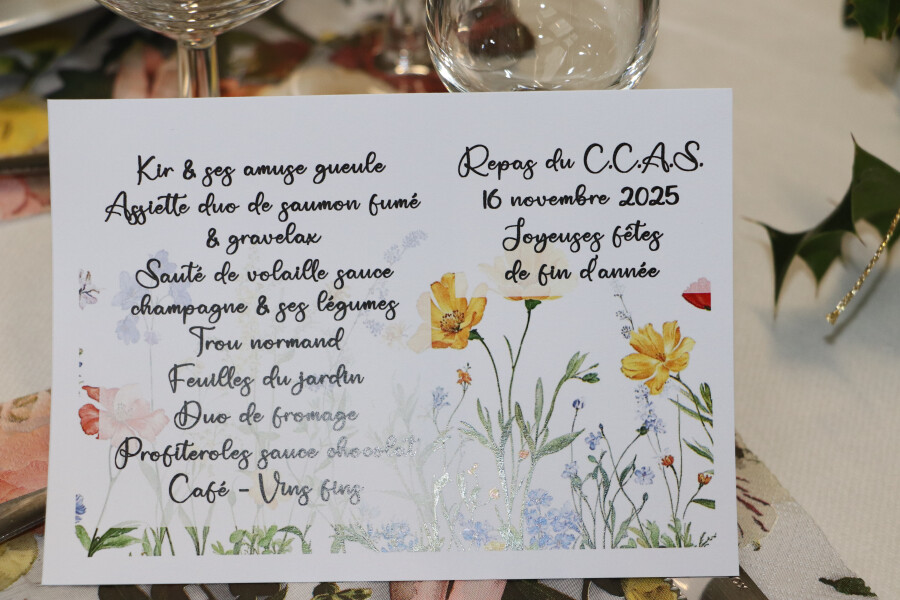 Kir & ses amuse gueule
Assiette duo de saumon fumé
& gravelax
Sauté de volaille sauce
champagne & ses légumes
Trou normand
Feuilles du jardin
Duo de fromage
Profiteroles sauce chocolat
Café - Vins fins
Repas du C.C.A.S.
16 novembre 2025
Joyeuses fêtes
de fin d'année